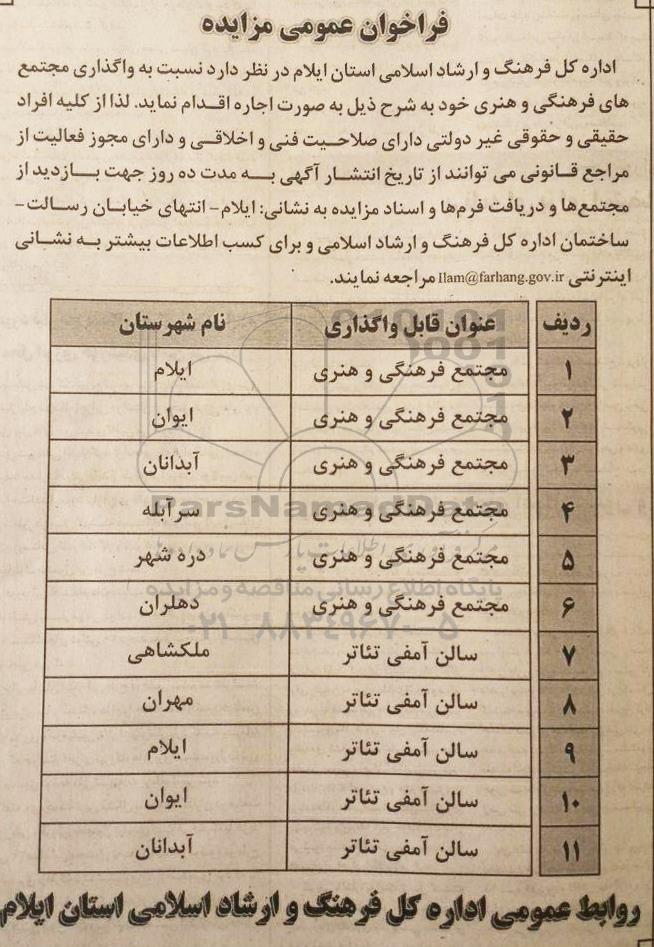 فراخوان عمومی مزایده
اداره کل فرهنگ و ارشاد اسلامی استان ایلام در نظر دارد نسبت به واگذاری مجتمع
های فرهنگی و هنری خود به شرح ذیل به صورت اجاره اقدام نماید. لذا از کلیه افراد
حقیقی و حقوقی غیر دولتی دارای صلاحیت فنی و اخلاقی و دارای مجوز فعالیت از
مراجع قانونی می توانند از تاریخ انتشار آگهی به مدت ده روز جهت بازدید از
مجتمع‌ها و دریافت فرم‌ها و اسناد مزایده به نشانی: ایلام- انتهای خیابان رسالت-
ساختمان اداره کل فرهنگ و ارشاد اسلامی و برای کسب اطلاعات بیشتر به نشانی
اینترنتی Ilam@farhang.gov.ir مراجعه نمایند.
ردیف عنوان قابل واگذاری نام شهرستان
۱ مجتمع فرهنگی و هنری ایلام
۲ مجتمع فرهنگی و هنری ایوان
۳ مجتمع فرهنگی و هنری آبدانان
۴ مجتمع فرهنگی و هنری سرآبله
۵ مجتمع فرهنگی و هنری دره شهر
۶ مجتمع فرهنگی و هنری دهلران
۷ سالن آمفی تئاتر ملکشاهی
۸ سالن آمفی تئاتر مهران
۹ سالن آمفی تئاتر ایلام
۱۰ سالن آمفی تئاتر ایوان
۱۱ سالن آمفی تئاتر آبدانان
روابط عمومی اداره کل فرهنگ و ارشاد اسلامی استان ایلام
ParsNamadData
پایگاه اطلاع رسانی مناقصه و مزایده
۰۲۱-۸۸۳۴۹۶۷۰-۵